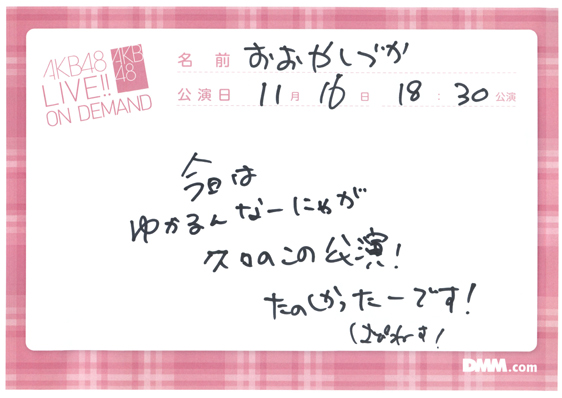 AKB48
LIVE!!
ON DEMAND
AKB
48
名前 おおやしづか
公演日 11月16日 18:30公演
今日は
ゆかるんなーにゃが
久々のこの公演!
たのしかったーです!
DMM.com